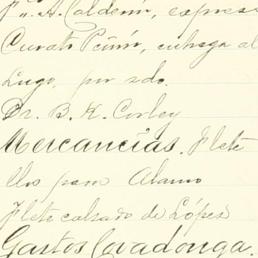 A. Calderón, expreso
Curato Peñón, entrega al
Lugo, por sdo.
Dr. B. K. Corley
Mercancías. Flete
llos para Alamo
Flete calzado de López
Gastos Covadonga.